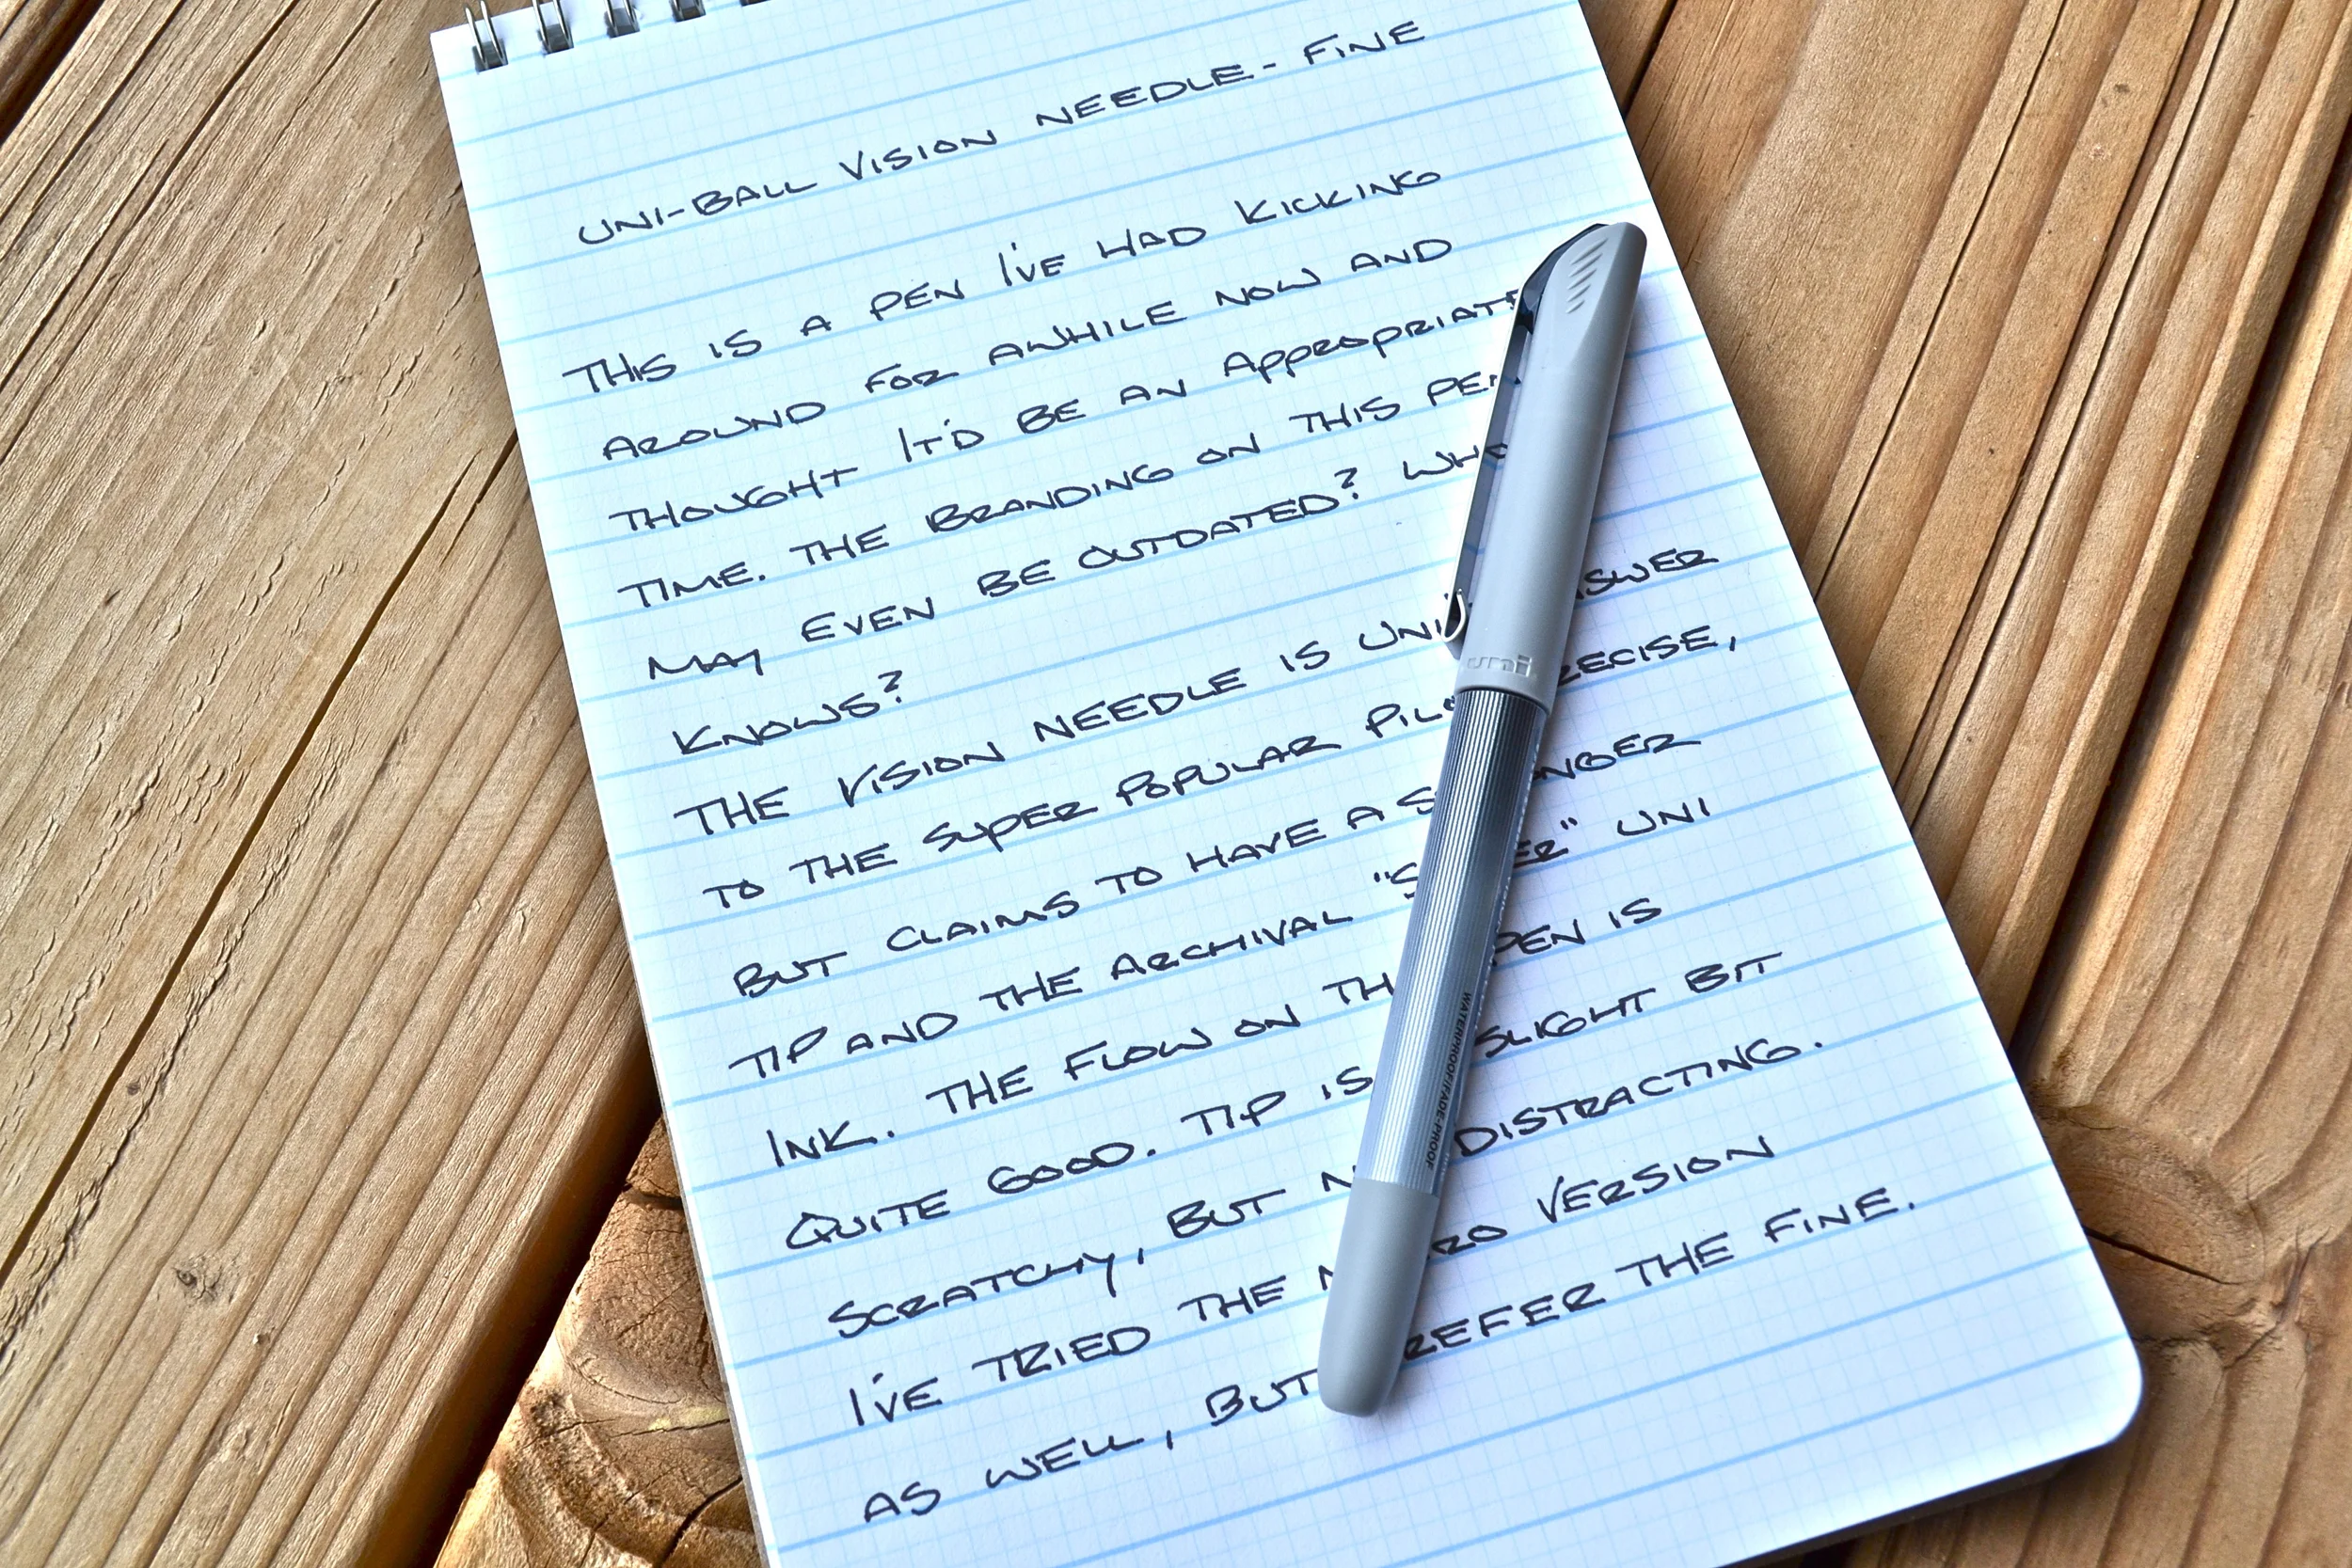 UNI-BALL VISION NEEDLE - FINE
THIS IS A PEN I'VE HAD KICKING
AROUND FOR AWHILE NOW AND
THOUGHT IT'D BE AN APPROPRIATE
TIME. THE BRANDING ON THIS PEN
MAY EVEN BE OUTDATED? WHO
KNOWS?
THE VISION NEEDLE IS UNI
TO THE SUPER POPULAR PILOT PRECISE,
BUT CLAIMS TO HAVE A
TIP AND THE ARCHIVAL UNI
INK. THE FLOW ON PEN IS
QUITE GOOD. TIP IS SLIGHT BIT
SCRATCHY, BUT DISTRACTING.
I'VE TRIED THE VERSION
AS WELL, BUT PREFER THE FINE.
uni
WATERPROOF/FADE-PROOF